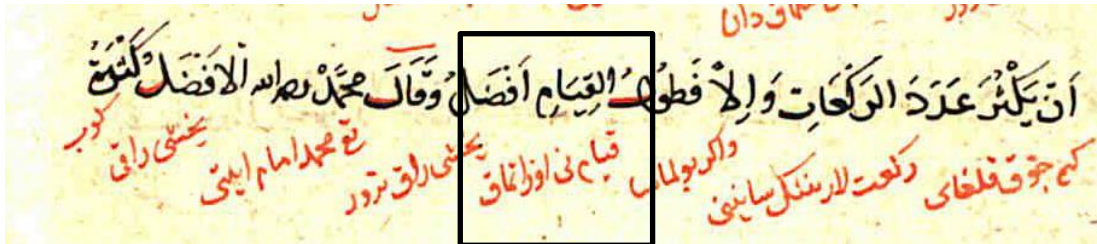 اَنْ يَكْثُرَ عَدَدَ الرَكَعَاتِ وَاِلاَّ فَطُولُ القِيَامِ اَفْضَلُ وَقَالَ مُحَمَّدْ رحمه الله الافْضَلُ كَثْرَةُ
كم جوق قلغاى ركعت لارىننك سانىنى واكر بولماسا قيام نى اوزاتماق يخشى راق ترور تع محمد امام ايلتى يخشى راقى كوب